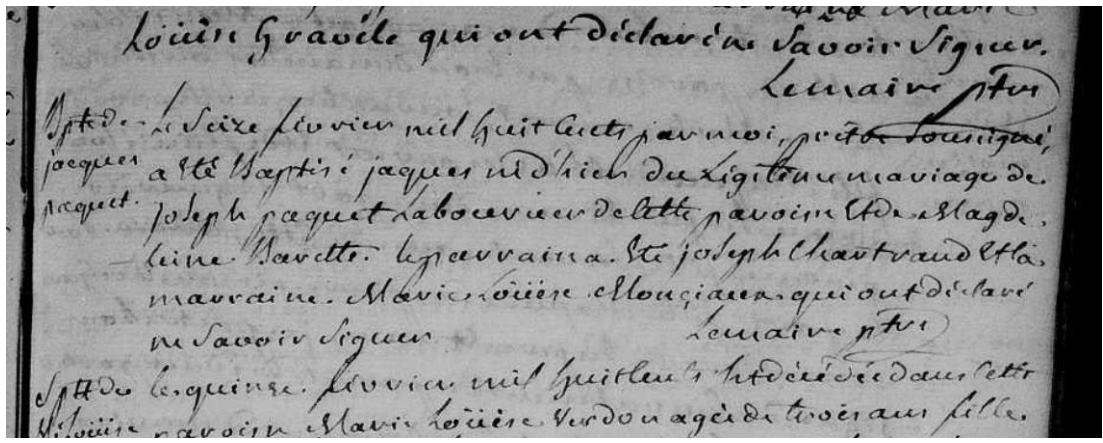 Loüise Gravèle qui ont déclaré ne Savoir Signer.
Lemaire ptre
Bpt de Le Seize fevrier mil huit Cents par moi, prêtre Soussigné,
jacques a Eté Baptisé jaques né d'hier du Légitime mariage de
paquet. joseph paquet Laboureur de Cette paroisse Et de Magde-
leine Barette. le parrain a Eté joseph Chartrand Et la
marraine. Marie Loüise Monçiaux qui ont déclaré
ne Savoir Signer Lemaire ptre
Le quinze. fevrier mil huit Cents Est décédée dans Cette
paroisse Marie Loüise Verdon agée de trois ans fille